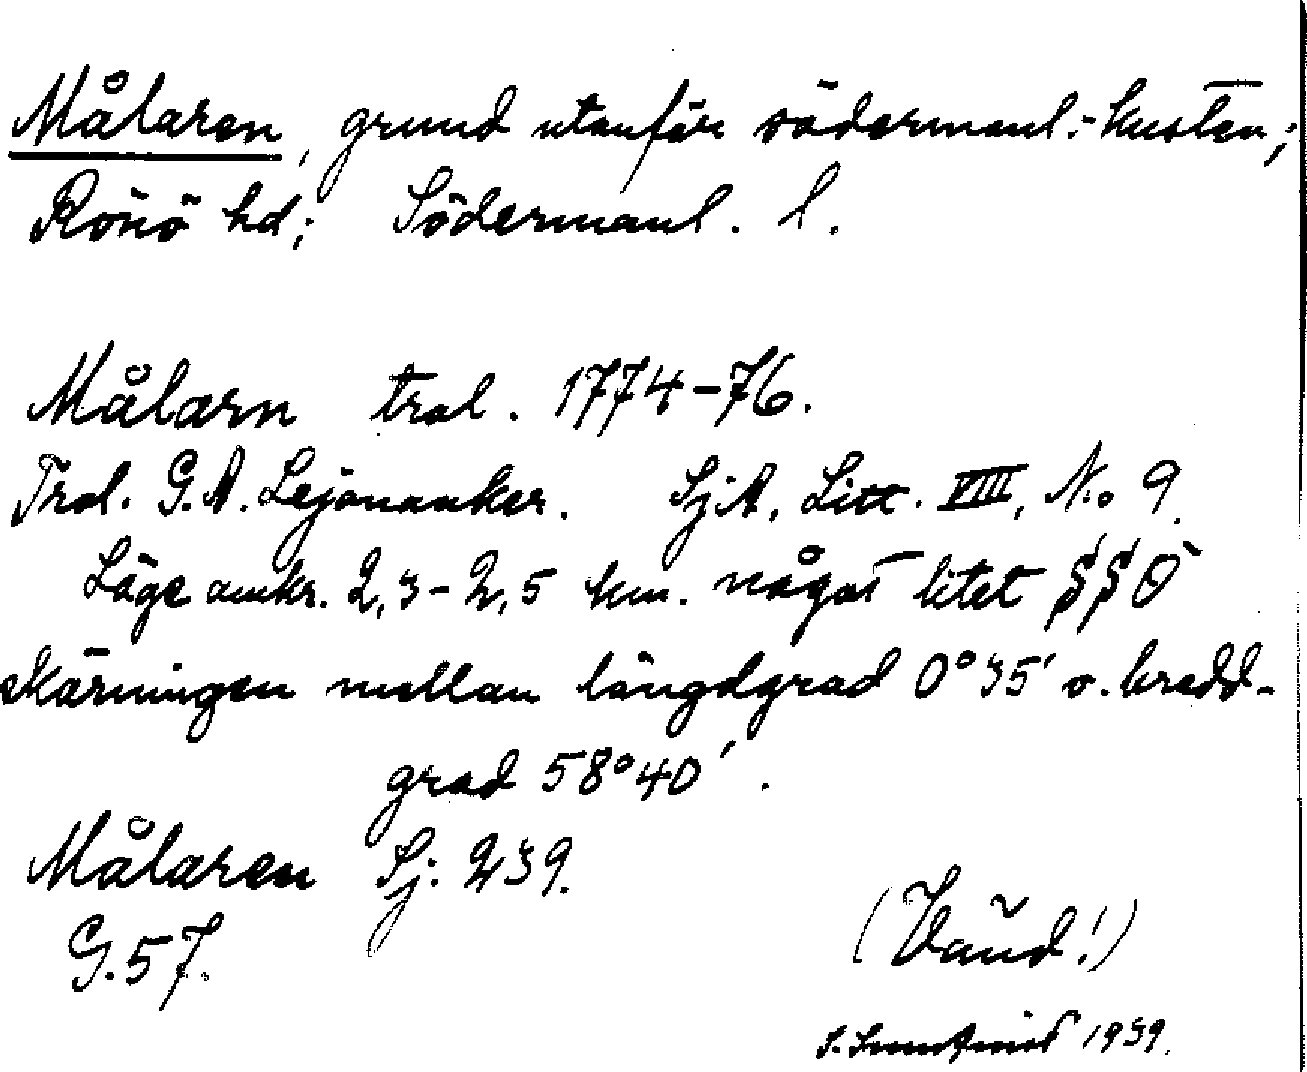 Målaren, grund utanför södermanl.-kusten;
Rönö hd; Södermanl. l.
Målarn trol. 1774-76.
Trol. G.A. Lejonanker. SjA, Litt. VIII, No 9.
Läge omkr. 2,3-2,5 km. något litet SSÖ
skärningen mellan längdgrad 0°35' o. bredd-
grad 58°40'.
Målaren Sj. 239.
G.57.
(Vänd!)
1939.